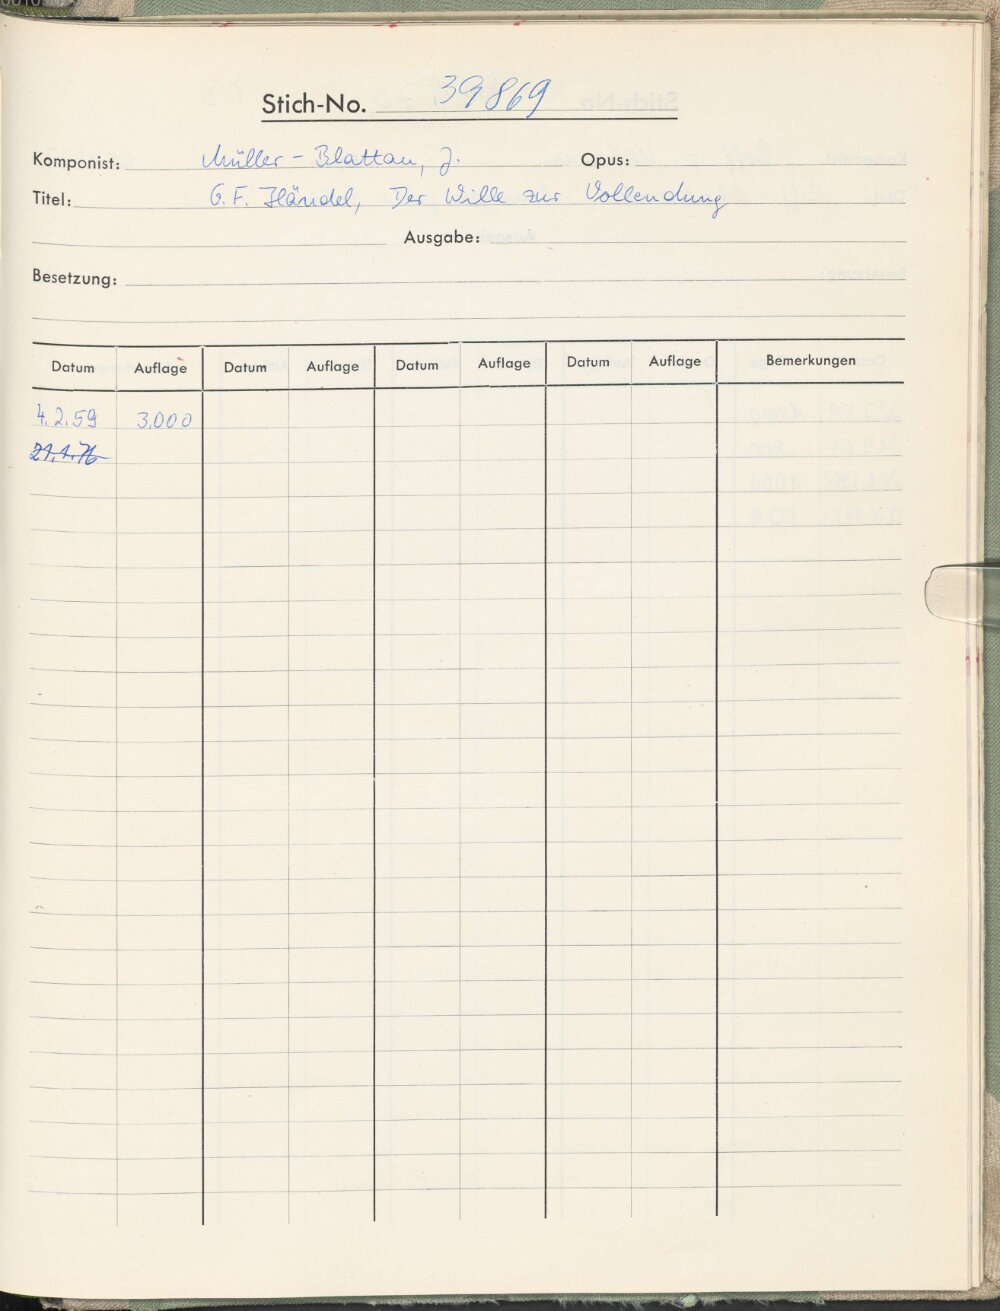 Stich-No. 39869
Komponist: Müller-Blattau, J. Opus:
Titel: G.F. Händel, Der Wille zur Vollendung
Ausgabe:
Besetzung:
Datum Auflage Datum Auflage Datum Auflage Datum Auflage Bemerkungen
4.2.59 3.000